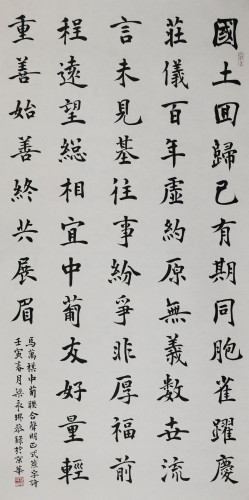 國土回歸已有期同胞雀躍
莊儀百年虛約原無義數世流
言未見基往事紛爭非厚福前
程遠望総相宜中葡友好量輕
重善始善終共展眉
馬萬祺中葡聯合聲明正式簽字詩
壬寅春月梁永琳敬錄於京華